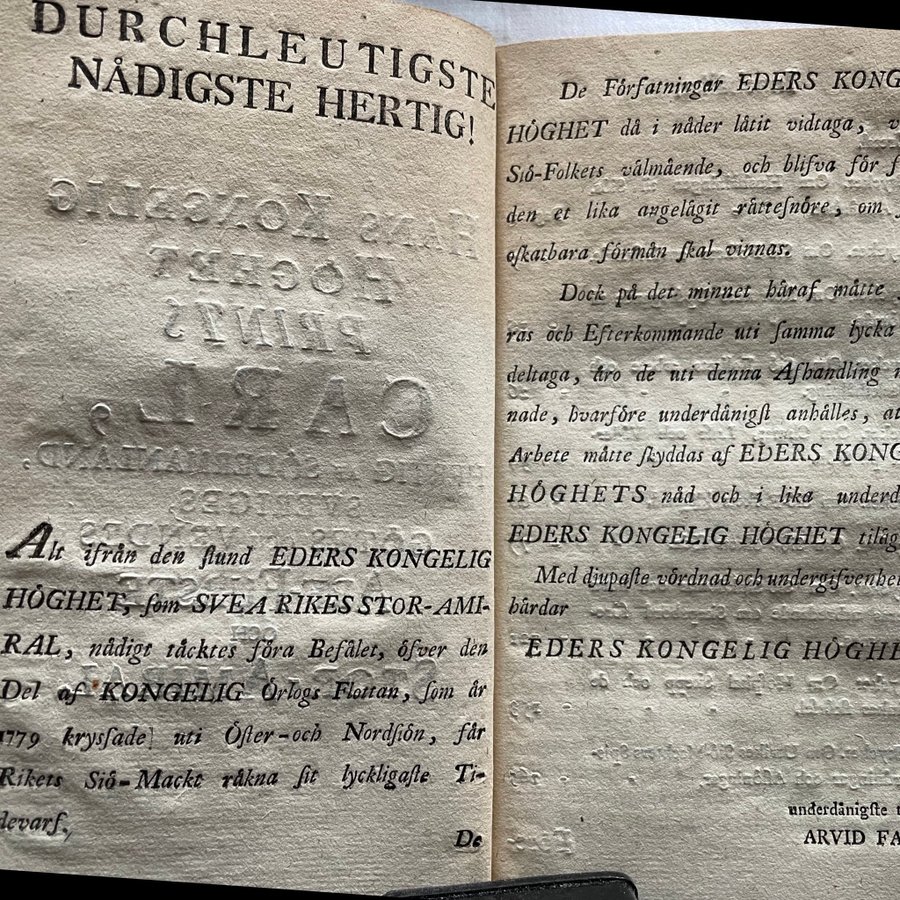 DURCHLEUTIGSTE
NÅDIGSTE HERTIG!
Alt ifrån den ſtund EDERS KONGELIG
HÖGHET, ſom SVEA RIKES STOR-AMI-
RAL, nådigt tåcktes föra Befålet, öfver den
Del af KONGELIG Örlogs Flottan, ſom år
1779 kryſſade uti Öſter-och Nordſiön, får
Rikets Siö-Mackt råkna ſit lyckligaſte Ti-
devarf.
De
De Förfatningar EDERS KONG
HÖGHET då i nåder låtit vidtaga,
Siö-Folkets vålmående, och blifva för
den et lika angelågit råtteſnöre, om
oſkatbara förmån ſkal vinnas.
Dock på det minnet håraf måtte
ras och Efterkommande uti ſamma lycka
deltaga, åro de uti denna Afhandling
nade, hvarföre underdånigſt anhålles, at
Arbete måtte ſkyddas af EDERS KONG
HÖGHETS nåd och i lika underd
EDERS KONGELIG HÖGHET tilåg
Med djupaſte vördnad och undergifvenhe
hårdar
EDERS KONGELIG HÖGHE
underdånigſte t
ARVID FA
HANS KONGELIG
HÖGHET
PRINTS
CARL,